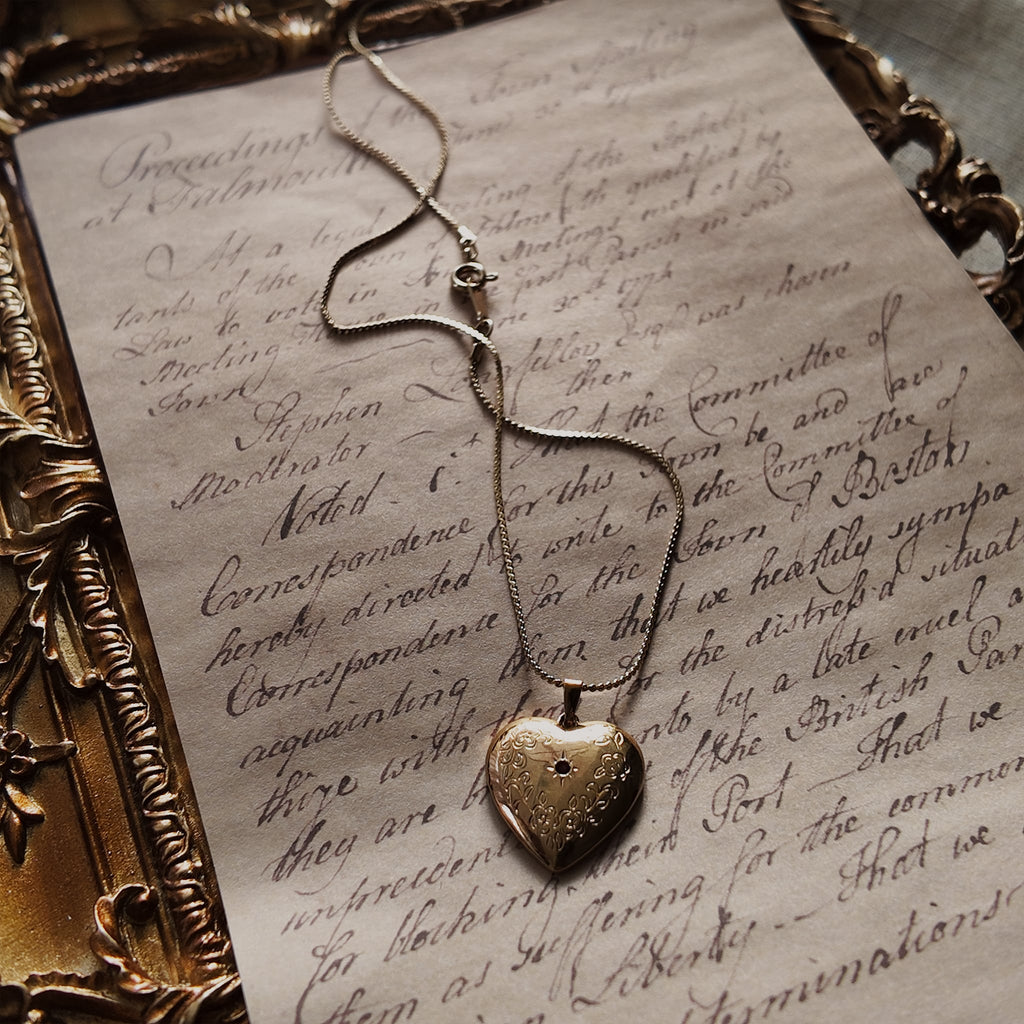 Proceedings of the Town Meeting
at Falmouth June 30
At a legal Meeting of the Inhabi-
tants of the Town of Falmouth qualified by
Law to vote in Town Meetings met at the
Meeting House in first Parish in said
Town June 30th 1774
Stephen Longfellow Esqr was chosen
Moderator then
Voted 1st That the Committee of
Correspondence for this Town be and are
hereby directed to write to the Committee of
Correspondence for the Town of Boston
acquainting them that we heartily sympa
thize with them for the distress'd situati
they are into by a late cruel a
unprecedent of the British Par
for blocking their Port - That we
them as suffering for the common
Liberty - That we
terminations